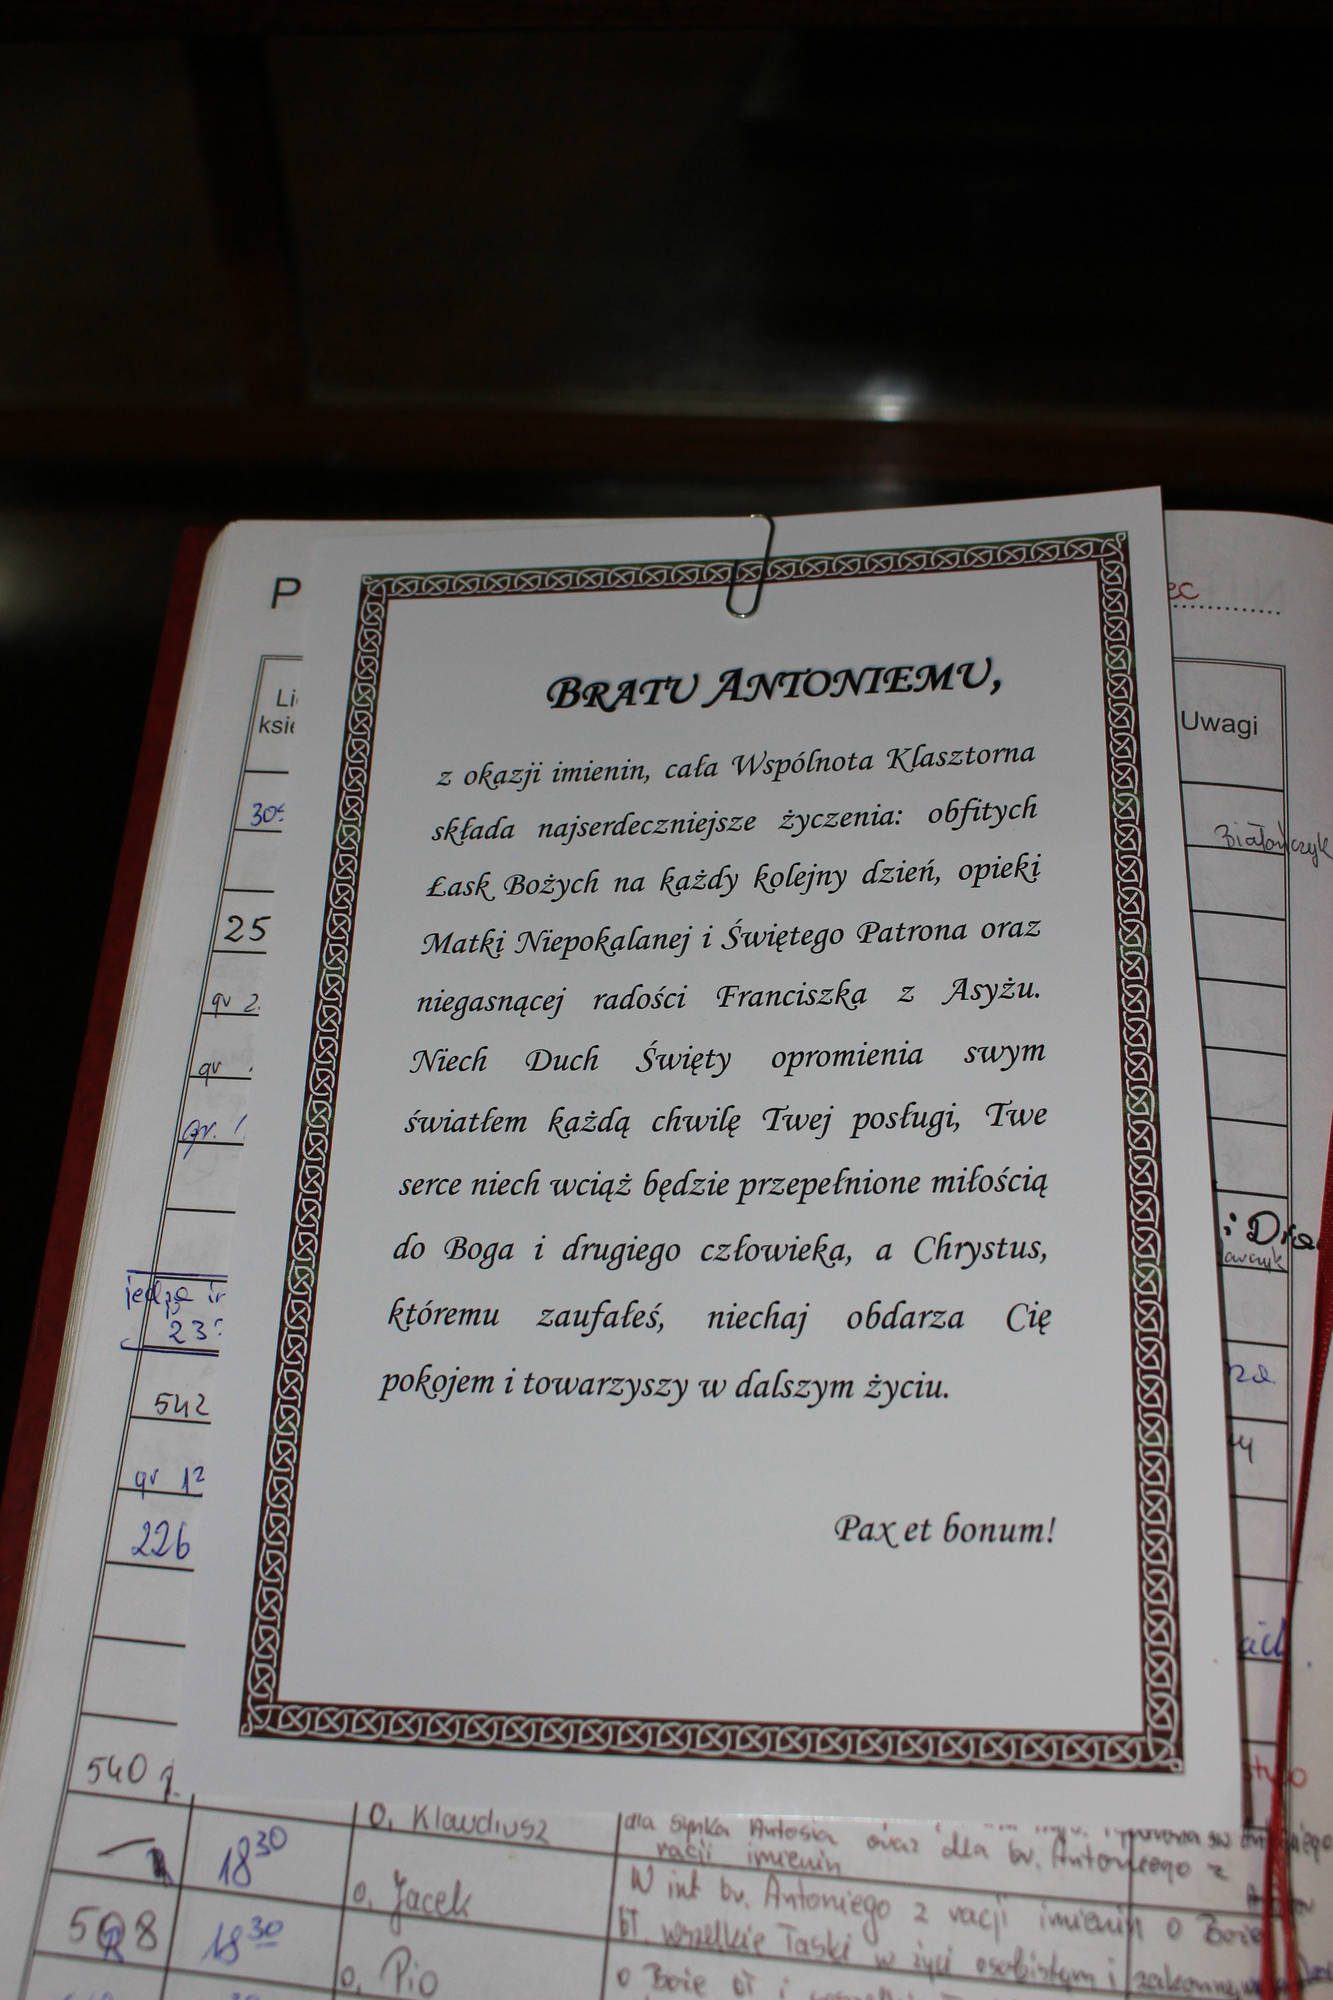 P
ec
Uwagi
30
Białończyk
25
gr 2.
gr
gr. 1
jedzą
23
542
gr 12
226
540
BRATU ANTONIEMU,
z okazji imienin, cała Wspólnota Klasztorna
składa najserdeczniejsze życzenia: obfitych
Łask Bożych na każdy kolejny dzień, opieki
Matki Niepokalanej i Świętego Patrona oraz
niegasnącej radości Franciszka z Asyżu.
Niech Duch Święty opromienia swym
światłem każdą chwilę Twej posługi, Twe
serce niech wciąż będzie przepełnione miłością
do Boga i drugiego człowieka, a Chrystus,
któremu zaufałeś, niechaj obdarza Cię
pokojem i towarzyszy w dalszym życiu.
Pax et bonum!
o. Klaudiusz
dla synka Antosia oraz dla br. Antoniego z
racji imienin
18 30
o. Jacek
W int br. Antoniego z racji imienin o Boże
bł. wszelkie łaski w życi osobistym i zakonnym
508
18 30
o. Pio
o Boże bł i